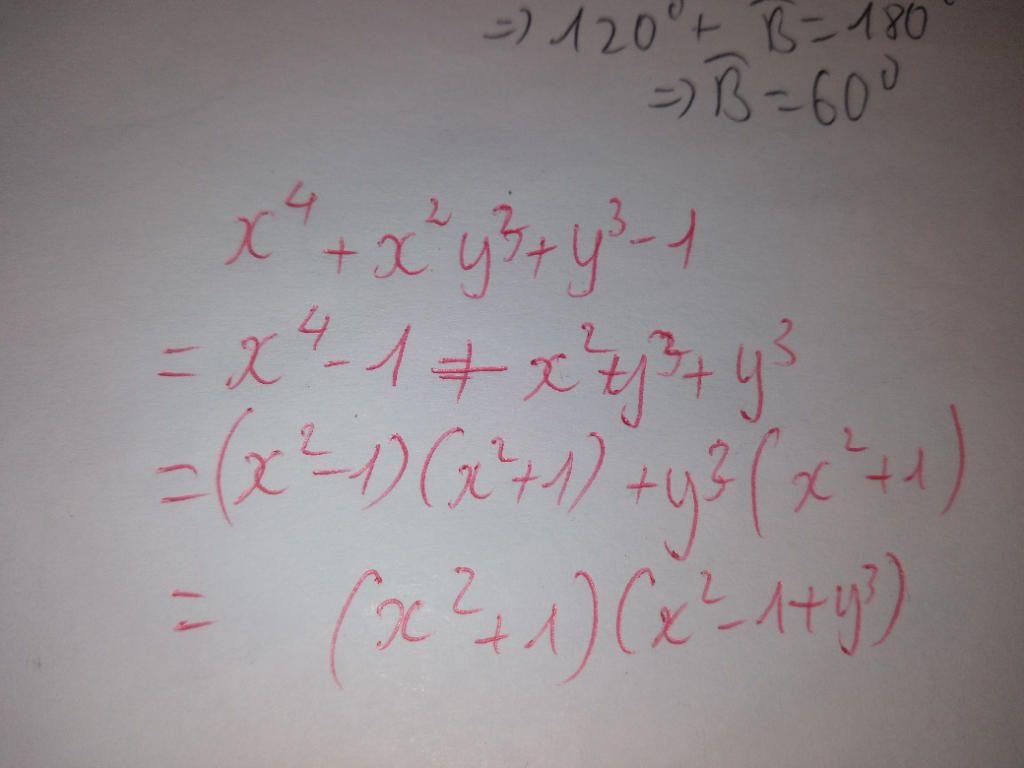 => 120⁰ + B̂ = 180⁰
=> B̂ = 60⁰
x⁴ + x²y³ + y³ - 1
= x⁴ - 1 + x²y³ + y³
= (x² - 1)(x² + 1) + y³(x² + 1)
= (x² + 1)(x² - 1 + y³)